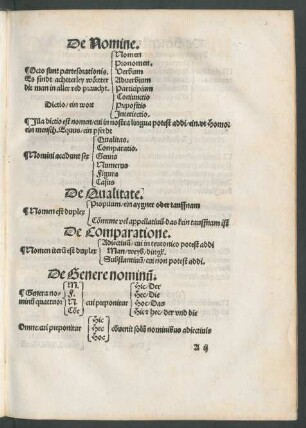 De Nomine.
Nomen
Pronomen.
¶Octo sunt partes orationis. Verbum
Es sindt achterley wörter Aduerbium
die man in aller red praucht. Participium
Coniunctio
Dictio/ ein wort Prepositio
Interiectio.
¶Illa dictio est nomen cui in nostra lingua potest addi ein. vt Homo/
ein mensch. Equus/ ein pferdt
Qualitas.
Comparatio.
¶Nomini accidunt sex Genus
Numerus
Figura
Casus
De Qualitate.
Proprium ein aygner oder tauffnam
¶Nomen est duplex
Cõmune vel appellatiuũ das kein tauffnam ist
De Comparatione.
Adiectiuũ. cui in teutonico potest addi
¶Nomen iterũ est duplex Man/ weyb/ dingk.
Substantiuũ/ cui non potest addi.
De Genere nominũ.
M. Hic/ Der
¶Genera no- F. Hec/ Die
minũ quattuor N. cui preponitur Hoc/ Das
Cõe Hic et hec/ der vnd die
Hic
Omne cui preponitur Hec cõuenit solũ nominibus adiectiuis
Hoc
A ij